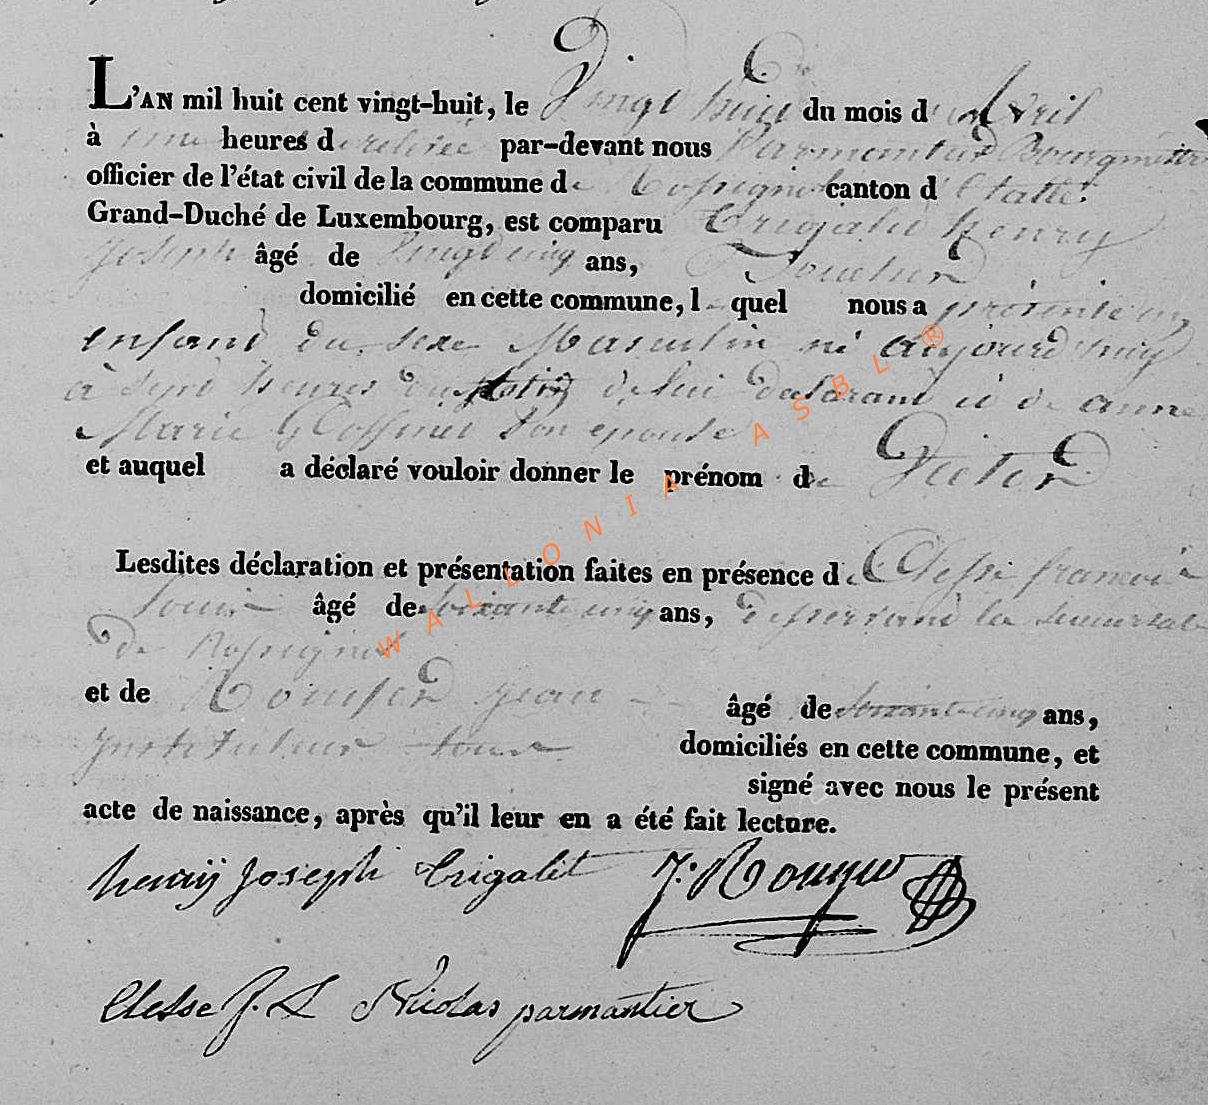 L'AN mil huit cent vingt-huit, le Vingt huit du mois d'Avril
à heures d par-devant nous Parmentier Bourgmestre
officier de l'état civil de la commune de Rossignol canton d'Etalle
Grand-Duché de Luxembourg, est comparu Trigalet henry
Joseph âgé de vingt cinq ans,
domicilié en cette commune, lequel nous a présenté un
enfant du sexe Masculin né aujourd'huy
à sept heures du Matin de lui déclarant et de anne
Marie son epouse
et auquel a déclaré vouloir donner le prénom de Victor
Lesdites déclaration et présentation faites en présence de Clesse francois
Louis âgé de soixante cinq ans, desservant la succursale
de Rossignol
et de jean âgé de ans,
Instituteur tous domiciliés en cette commune, et
signé avec nous le présent
acte de naissance, après qu'il leur en a été fait lecture.
henry Joseph trigalet J. Rouyer
Clesse f. L Nicolas parmantier
WALLONIA ASBL ®